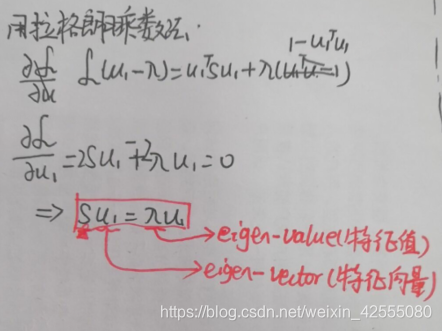 用拉格朗日乘数法.
∂L/∂u L(u₁-λ)=u₁ᵀSu₁+λ(1-u₁ᵀu₁)
∂L/∂u₁=2Su₁-2λu₁=0
⇒ Su₁=λu₁
eigen-value(特征值)
eigen-vector(特征向量)
https://blog.csdn.net/weixin_42555080